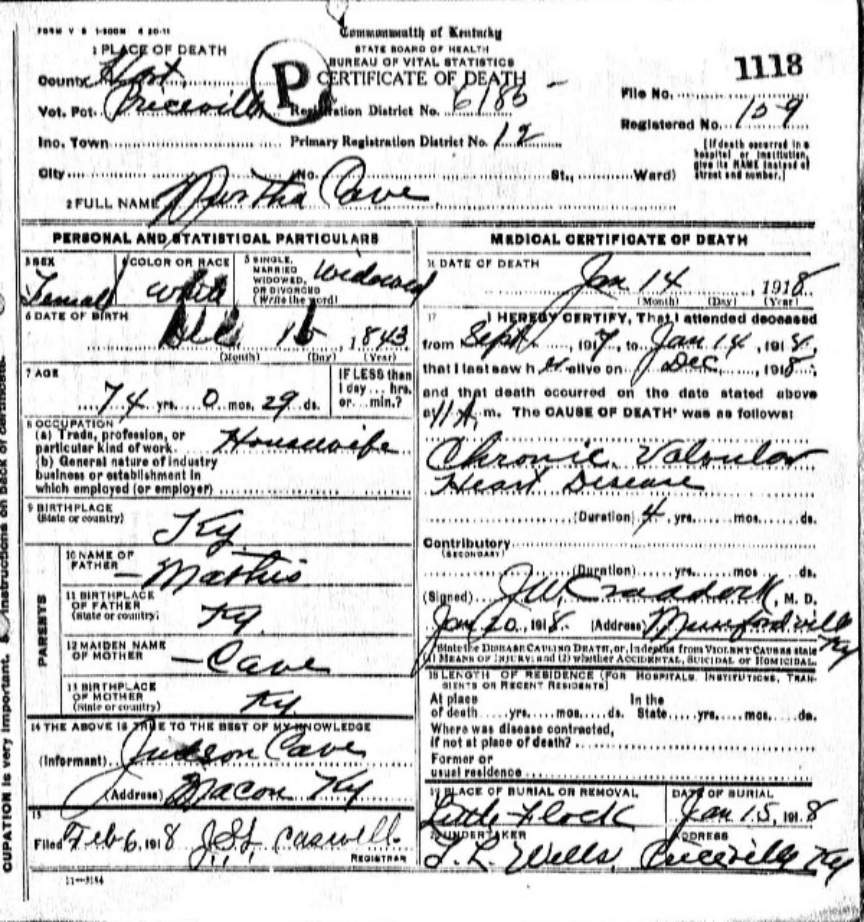 FORM V S 1-500M 4 20-11
Commonwealth of Kentucky
STATE BOARD OF HEALTH
BUREAU OF VITAL STATISTICS
CERTIFICATE OF DEATH
P
1118
1 PLACE OF DEATH
County Hart
Vot. Pct. Priceville Registration District No. 6185
File No.
Registered No. 109
Inc. Town Primary Registration District No. 12
[If death occurred in a
hospital or institution,
give its NAME instead of
street and number.]
City (No. St., Ward)
2 FULL NAME Cave
PERSONAL AND STATISTICAL PARTICULARS
3 SEX Female
4 COLOR OR RACE White
5 SINGLE,
MARRIED
WIDOWED,
OR DIVORCED
(Write the word)
Widowed
6 DATE OF BIRTH
Dec 16, 1843
(Month) (Day) (Year)
7 AGE
74 yrs. 0 mos. 29 ds.
IF LESS than
1 day... hrs.
or... min.?
8 OCCUPATION
(a) Trade, profession, or
particular kind of work Housewife
(b) General nature of industry
business or establishment in
which employed (or employer)
9 BIRTHPLACE
(State or country)
Ky
PARENTS
10 NAME OF
FATHER
— Mathis
11 BIRTHPLACE
OF FATHER
(State or country)
Ky.
12 MAIDEN NAME
OF MOTHER
— Cave
13 BIRTHPLACE
OF MOTHER
(State or country)
Ky
14 THE ABOVE IS TRUE TO THE BEST OF MY KNOWLEDGE
(Informant) Judson Cave
(Address) Macon Ky
15
Filed Feb 6, 1918 Caswell
REGISTRAR
11—3184
MEDICAL CERTIFICATE OF DEATH
16 DATE OF DEATH
Jan 14, 1918
(Month) (Day) (Year)
17 I HEREBY CERTIFY, That I attended deceased
from Sept, 1917, to Jan 14, 1918,
that I last saw h er alive on Dec, 1918,
and that death occurred on the date stated above
at 11 A. m. The CAUSE OF DEATH* was as follows:
Chronic Valvular
Heart Disease
(Duration) 4 yrs. mos. ds.
Contributory
(SECONDARY)
(Duration) yrs. mos. ds.
(Signed) J.W. Craddock, M. D.
Jan 20, 1918. (Address) Munfordville Ky
*State the DISEASE CAUSING DEATH, or, in deaths from VIOLENT CAUSES state
(1) MEANS OF INJURY; and (2) whether ACCIDENTAL, SUICIDAL OR HOMICIDAL.
18 LENGTH OF RESIDENCE (FOR HOSPITALS, INSTITUTIONS, TRAN-
SIENTS OR RECENT RESIDENTS)
At place In the
of death yrs. mos. ds. State yrs. mos. ds.
Where was disease contracted,
if not at place of death?
Former or
usual residence
19 PLACE OF BURIAL OR REMOVAL DATE OF BURIAL
Little Flock Jan 15, 1918
20 UNDERTAKER ADDRESS
Wells, Priceville Ky
CUPATION is very important. Instructions on back of certificate.